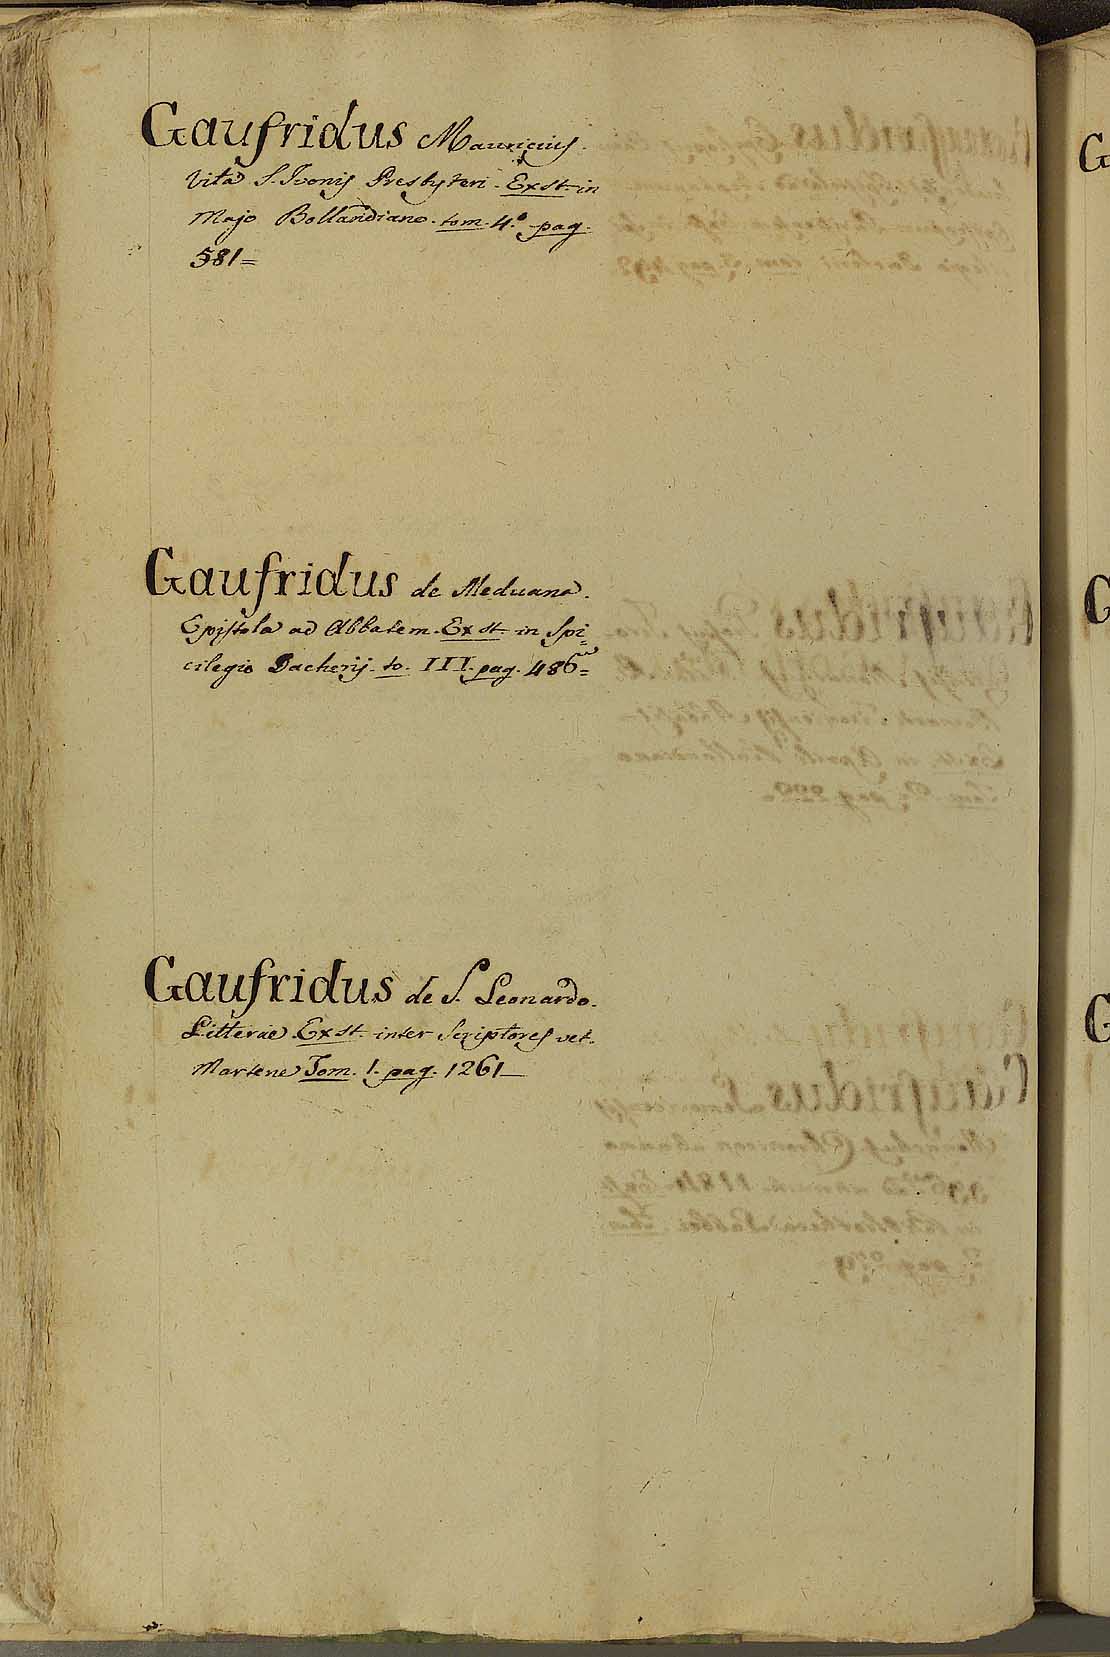 Gaufridus Mauricius.
Vita S. Ivonis Presbyteri. Exst. in
Majo Bollandiano. tom. 4.º pag.
581=
Gaufridus de Meduana.
Epistola ad Abbatem. Exst. in Spi=
cilegio Dacherij. to. III. pag. 486=
Gaufridus de S. Leonardo.
Litterae Exst. inter Scriptores vet.
Martene Tom. 1. pag. 1261_
G
G
G